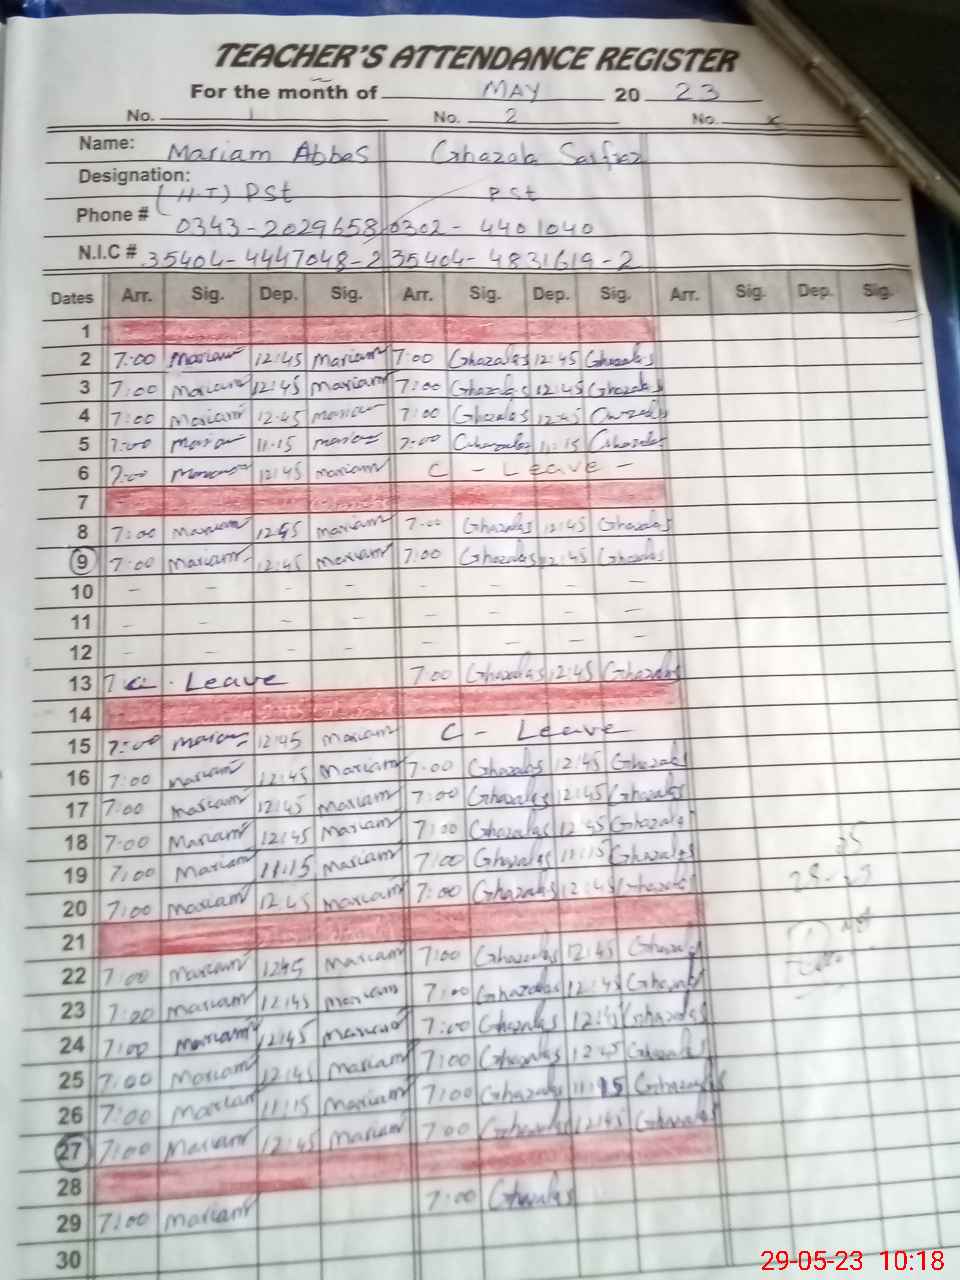 TEACHER'S ATTENDANCE REGISTER
For the month of MAY 20 23
No. 1 No. 2 No. x
Name: Mariam Abbas Ghazala Sarfraz
Designation: (H-T) PSt PSt
Phone # 0343-2029658 0302-4401040
N.I.C # 35404-4447048-2 35404-4831619-2
Dates Arr. Sig. Dep. Sig. Arr. Sig. Dep. Sig. Arr. Sig. Dep. Sig.
1
2 7:00 Mariam 12:45 Mariam 7:00 Ghazala 12:45 Ghazala
3 7:00 Mariam 12:45 Mariam 7:00 Ghazala 12:45 Ghazala
4 7:00 Mariam 12:45 Mariam 7:00 Ghazala 12:45 Ghazala
5 7:00 Mariam 11:15 Mariam 7:00 Ghazala 11:15 Ghazala
6 7:00 Mariam 12:45 Mariam C - Leave -
7
8 7:00 Mariam 12:45 Mariam 7:00 Ghazala 12:45 Ghazala
9 7:00 Mariam 12:45 Mariam 7:00 Ghazala 12:45 Ghazala
10 - - - - - - - -
11 - - - - - - - -
12 - - - - - - - -
13 C - Leave 7:00 Ghazala 12:45 Ghazala
14
15 7:00 Mariam 12:45 Mariam C - Leave
16 7:00 Mariam 12:45 Mariam 7:00 Ghazala 12:45 Ghazala
17 7:00 Mariam 12:45 Mariam 7:00 Ghazala 12:45 Ghazala
18 7:00 Mariam 12:45 Mariam 7:00 Ghazala 12:45 Ghazala
19 7:00 Mariam 11:15 Mariam 7:00 Ghazala 11:15 Ghazala
20 7:00 Mariam 12:45 Mariam 7:00 Ghazala 12:45 Ghazala
21
22 7:00 Mariam 12:45 Mariam 7:00 Ghazala 12:45 Ghazala
23 7:00 Mariam 12:45 Mariam 7:00 Ghazala 12:45 Ghazala
24 7:00 Mariam 12:45 Mariam 7:00 Ghazala 12:45 Ghazala
25 7:00 Mariam 12:45 Mariam 7:00 Ghazala 12:45 Ghazala
26 7:00 Mariam 11:15 Mariam 7:00 Ghazala 11:15 Ghazala
27 7:00 Mariam 12:45 Mariam 7:00 Ghazala 12:45 Ghazala
28
29 7:00 Mariam 7:00 Ghazala
30
29-05-23 10:18